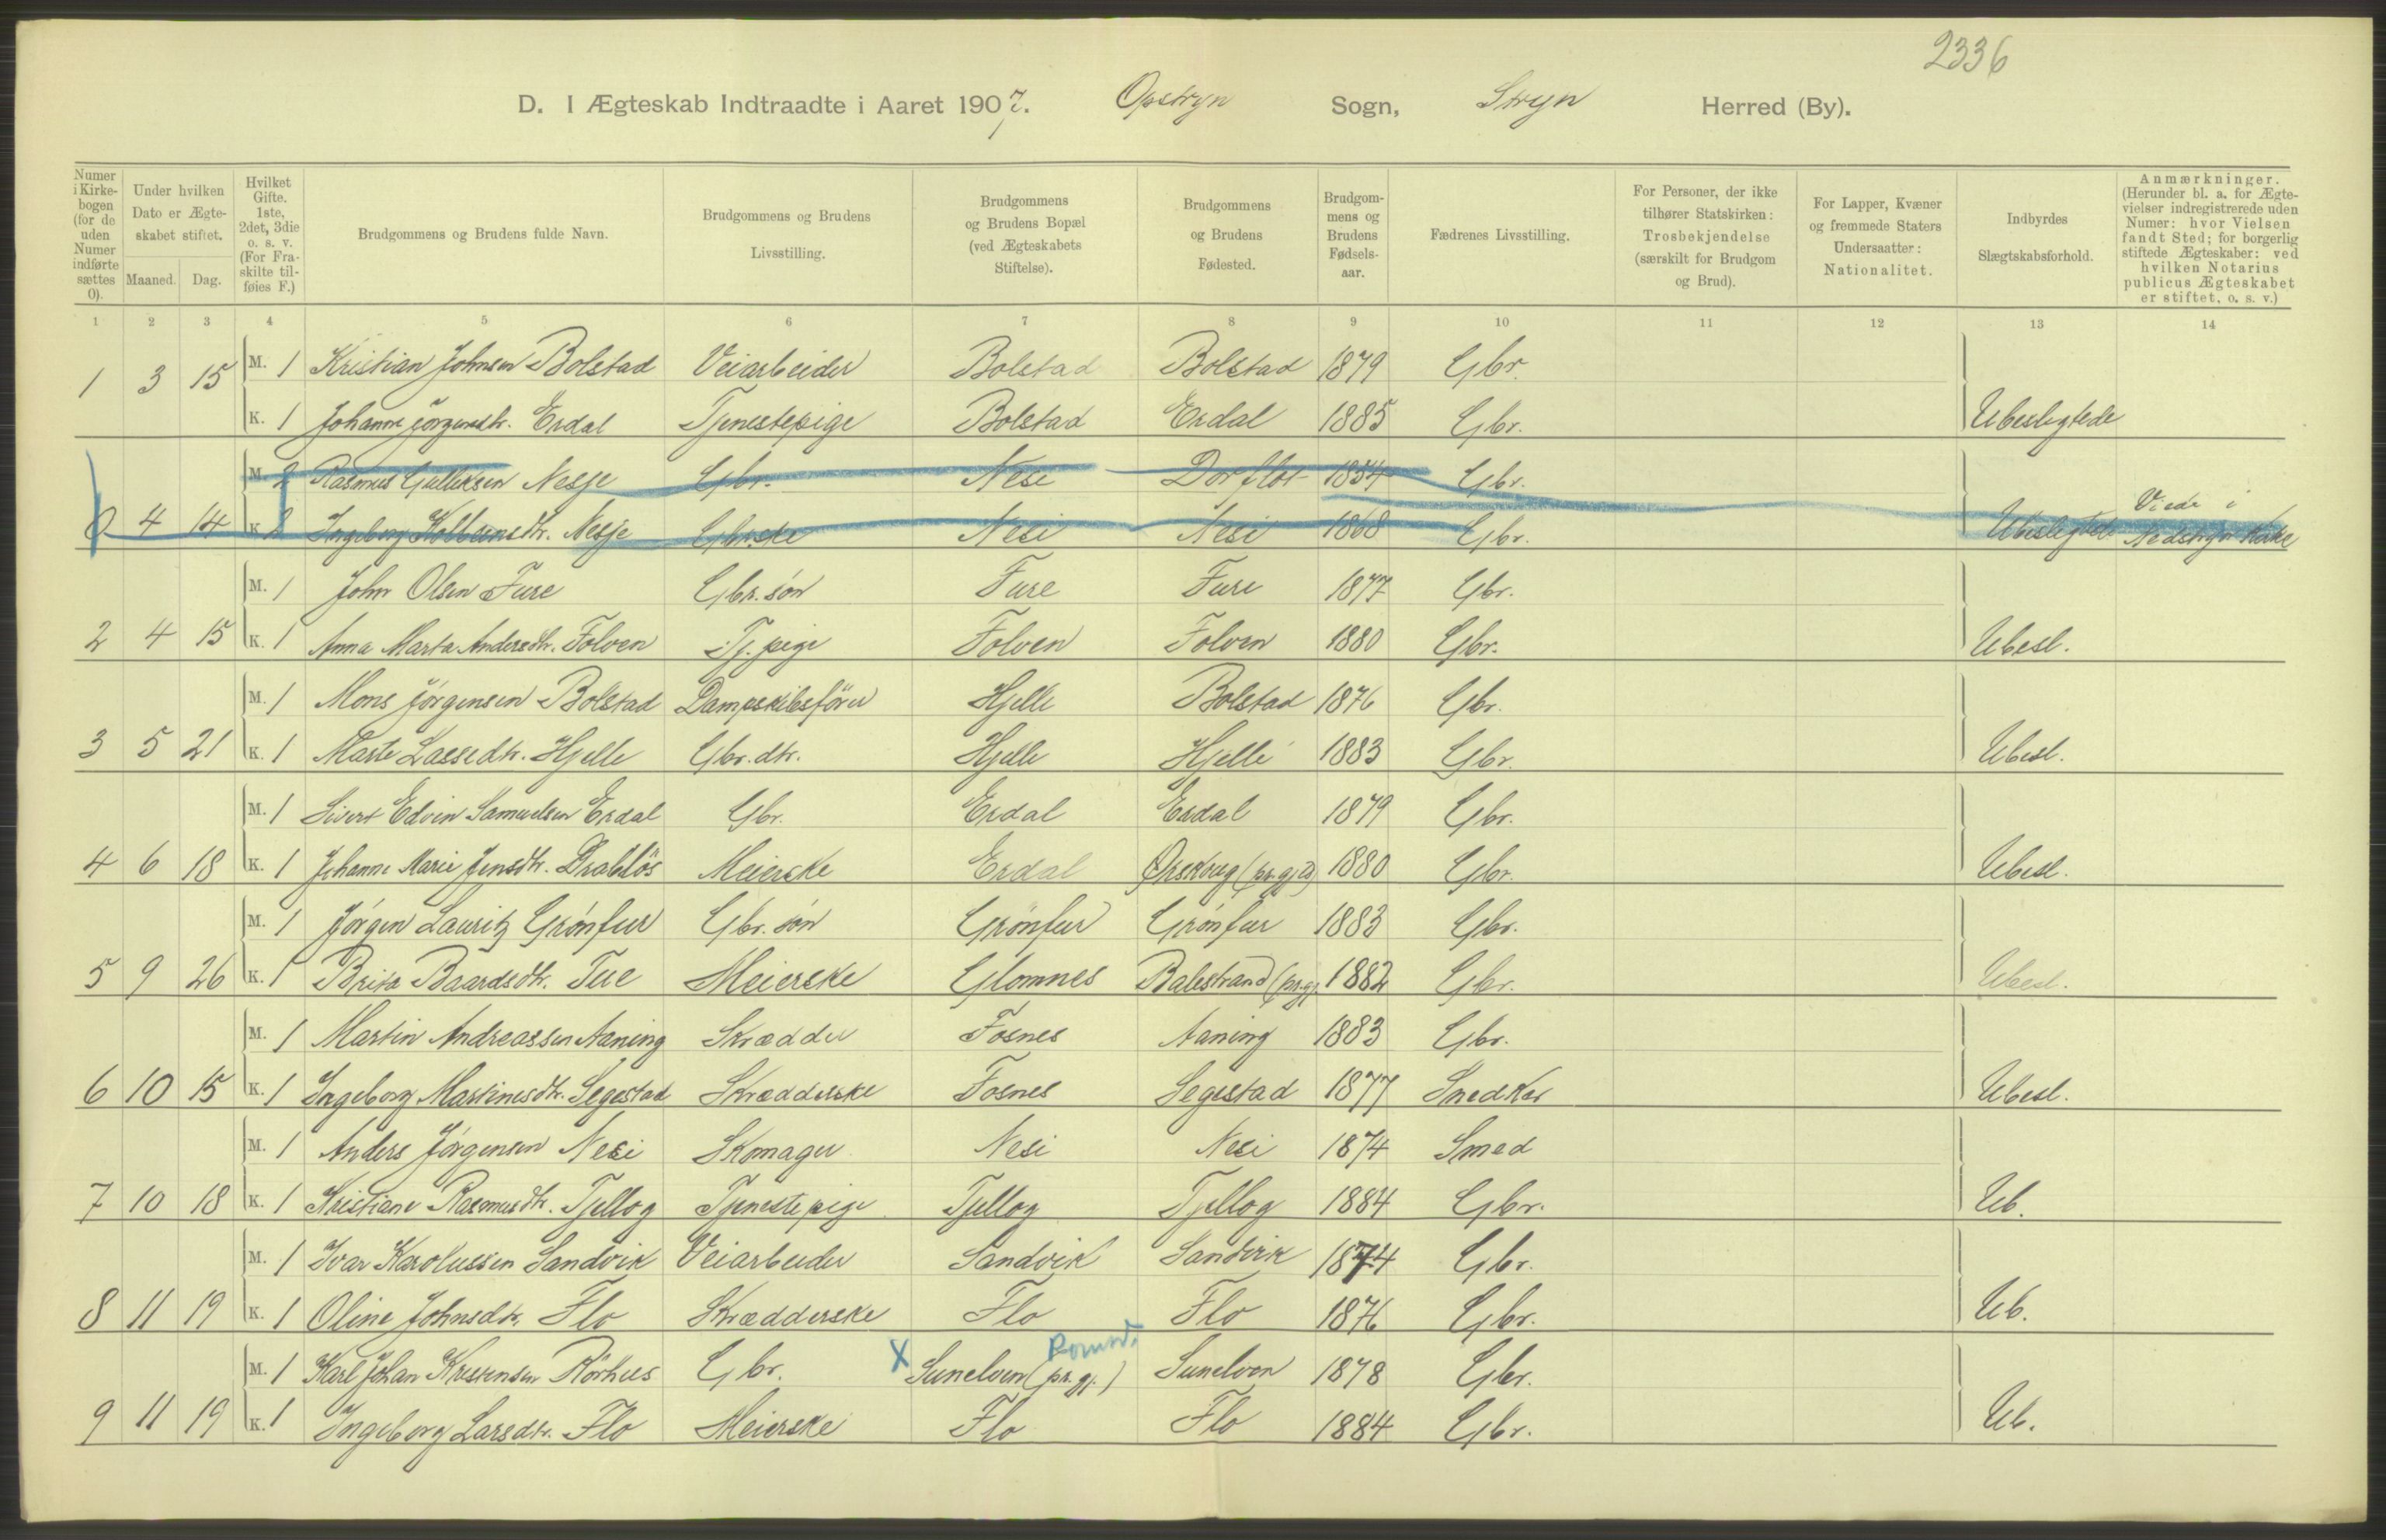 2336
D. I Ægteskab Indtraadte i Aaret 1907. Opstryn Sogn, Stryn Herred (By).
Numer i Kirke-bogen (for de uden Numer indførte sættes 0).
Under hvilken Dato er Ægte-skabet stiftet.
Maaned. Dag.
Hvilket Gifte. 1ste, 2det, 3die o. s. v. (For Fra-skilte til-føies F.)
Brudgommens og Brudens fulde Navn.
Brudgommens og Brudens Livsstilling.
Brudgommens og Brudens Bopæl (ved Ægteskabets Stiftelse).
Brudgommens og Brudens Fødested.
Brudgom-mens og Brudens Fødsels-aar.
Fædrenes Livsstilling.
For Personer, der ikke tilhører Statskirken: Trosbekjendelse (særskilt for Brudgom og Brud).
For Lapper, Kvæner og fremmede Staters Undersaatter: Nationalitet.
Indbyrdes Slægtskabsforhold.
Anmærkninger. (Herunder bl. a. for Ægte-vielser indregistrerede uden Numer: hvor Vielsen fandt Sted; for borgerlig stiftede Ægteskaber: ved hvilken Notarius publicus Ægteskabet er stiftet, o. s. v.)
1 2 3 4 5 6 7 8 9 10 11 12 13 14
M. 1 Kristian Johnsen Bolstad Veiarbeider Bolstad Bolstad 1879 Gbr.
1 3 15 K. 1 Johanne Jørgensdtr. Erdal Tjenestepige Bolstad Erdal 1885 Gbr. Ubeslegtede
M. 2 Rasmus Gulleksen Nesje Gbr. Nesi Dorflot 1854 Gbr.
0 4 14 K. 2 Ingeborg Kolbeinsdtr. Nesje Gbrske Nesi Nesi 1868 Gbr. Ubeslegtede Viede i Nedstryn Kirke
M. 1 John Olsen Fure Gbr. søn Fure Fure 1877 Gbr.
2 4 15 K. 1 Anna Marta Andersdtr. Folven Tj. pige Folven Folven 1880 Gbr. Ubesl.
M. 1 Mons Jørgensen Bolstad Dampskibsfører Hjelle Bolstad 1876 Gbr.
3 5 21 K. 1 Marte Lassedtr. Hjelle Gbr. dtr. Hjelle Hjelle 1883 Gbr. Ubesl.
M. 1 Sivert Edvin Samuelsen Erdal Gbr. Erdal Erdal 1879 Gbr.
4 6 18 K. 1 Johanne Marie Jensdtr. Drabløs Meierske Erdal Ørskoug (pr.gjd) 1880 Gbr. Ubesl.
M. 1 Jørgen Lauritz Grønfur Gbr. søn Grønfur Grønfur 1883 Gbr.
5 9 26 K. 1 Brita Baardsdtr. Tue Meierske Glomnes Balestrand (pr.gj. 1882 Gbr. Ubesl.
M. 1 Martin Andreassen Aaning Skrædder Fosnes Aaning 1883 Gbr.
6 10 15 K. 1 Ingeborg Martinesdtr. Segestad Skrædderske Fosnes Segestad 1877 Snedker Ubesl.
M. 1 Anders Jørgensen Nesi Skomager Nesi Nesi 1874 Smed
7 10 18 K. 1 Kristiane Rasmusdtr. Tjellog Tjenestepige Tjellog Tjellog 1884 Gbr. Ub.
M. 1 Ivar Karolussen Sandvik Veiarbeider Sandvik Sandvik 1874 Gbr.
8 11 19 K. 1 Oline Johnsdtr. Flo Skrædderske Flo Flo 1876 Gbr. Ub.
Romsd.
M. 1 Karl Johan Kristensen Rørhus Gbr. X Sunelven (pr. gj.) Sunelven 1878 Gbr.
9 11 19 K. 1 Ingeborg Larsdtr. Flo Meierske Flo Flo 1884 Gbr. Ub.